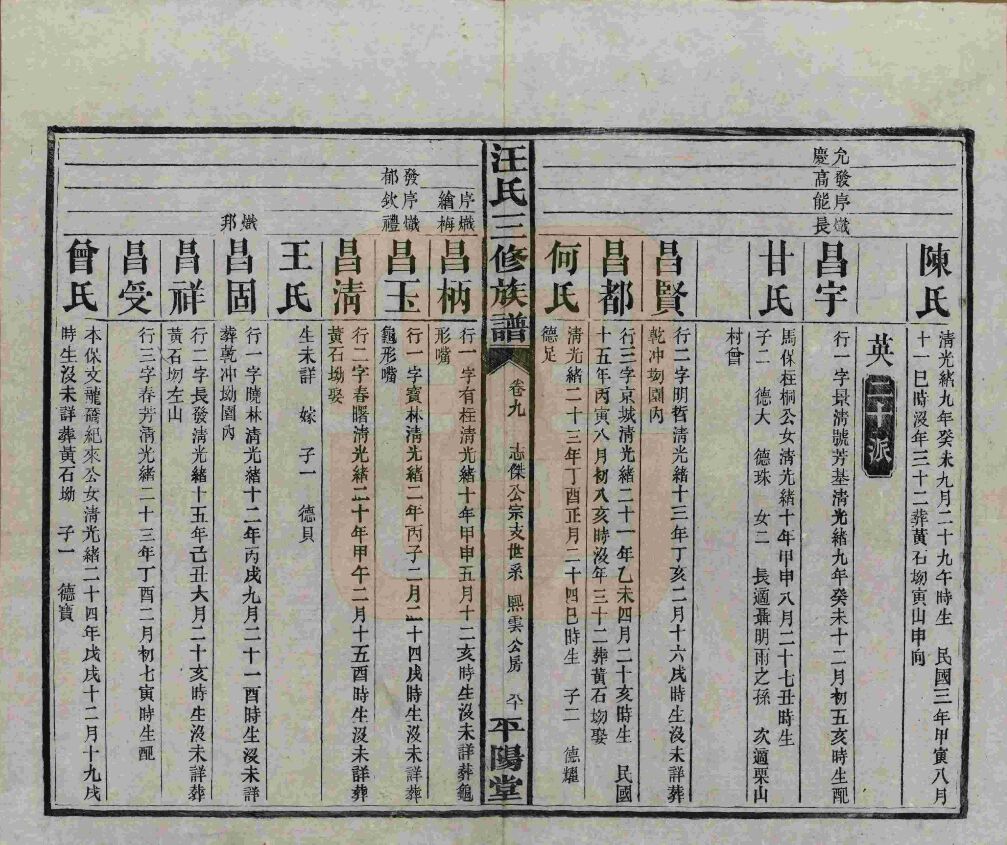 陳氏
清光緒九年癸未九月二十九午時生 民國三年甲寅八月
十一巳時沒年三十二葬黃石坳寅山申向
英 二十派
允發序熾
慶高能長
昌宇
行一字景清號芳基清光緒九年癸未十二月初五亥時生配
甘氏
馬保枉桐公女清光緒十年甲申八月二十七丑時生
子二 德大 德珠 女二 長適聶明雨之孫 次適栗山
村曾
昌賢
行二字明哲清光緒十三年丁亥二月十六戌時生沒未詳葬
乾冲坳園內
昌都
行三字京城清光緒二十一年乙未四月二十亥時生 民國
十五年丙寅八月初八亥時沒年三十二葬黃石坳娶
何氏
清光緒二十三年丁酉正月二十四巳時生 子二 德耀
德足
汪氏三修族譜
卷九 志傑公宗支世系 熙雲公房
平陽堂
序熾
繪梅
昌柄
行一字有桂清光緒十年甲申五月十二亥時生沒未詳葬龜
形嘴
發序熾
郁欽禮
昌玉
行一字寶林清光緒二年丙子二月二十四戌時生沒未詳葬
龜形嘴
昌清
行二字春曙清光緒二十年甲午二月十五酉時生沒未詳葬
黃石坳娶
王氏
生未詳 嫁 子一 德貝
熾
邦
昌固
行一字曉林清光緒十二年丙戌九月二十一酉時生沒未詳
葬乾冲坳園內
昌祥
行二字長發清光緒十五年己丑六月二十亥時生沒未詳葬
黃石坳左山
昌受
行三字春芳清光緒二十三年丁酉二月初七寅時生配
曾氏
本保文龍磻紀來公女清光緒二十四年戊戌十二月十九戌
時生沒未詳葬黃石坳 子一 德寶